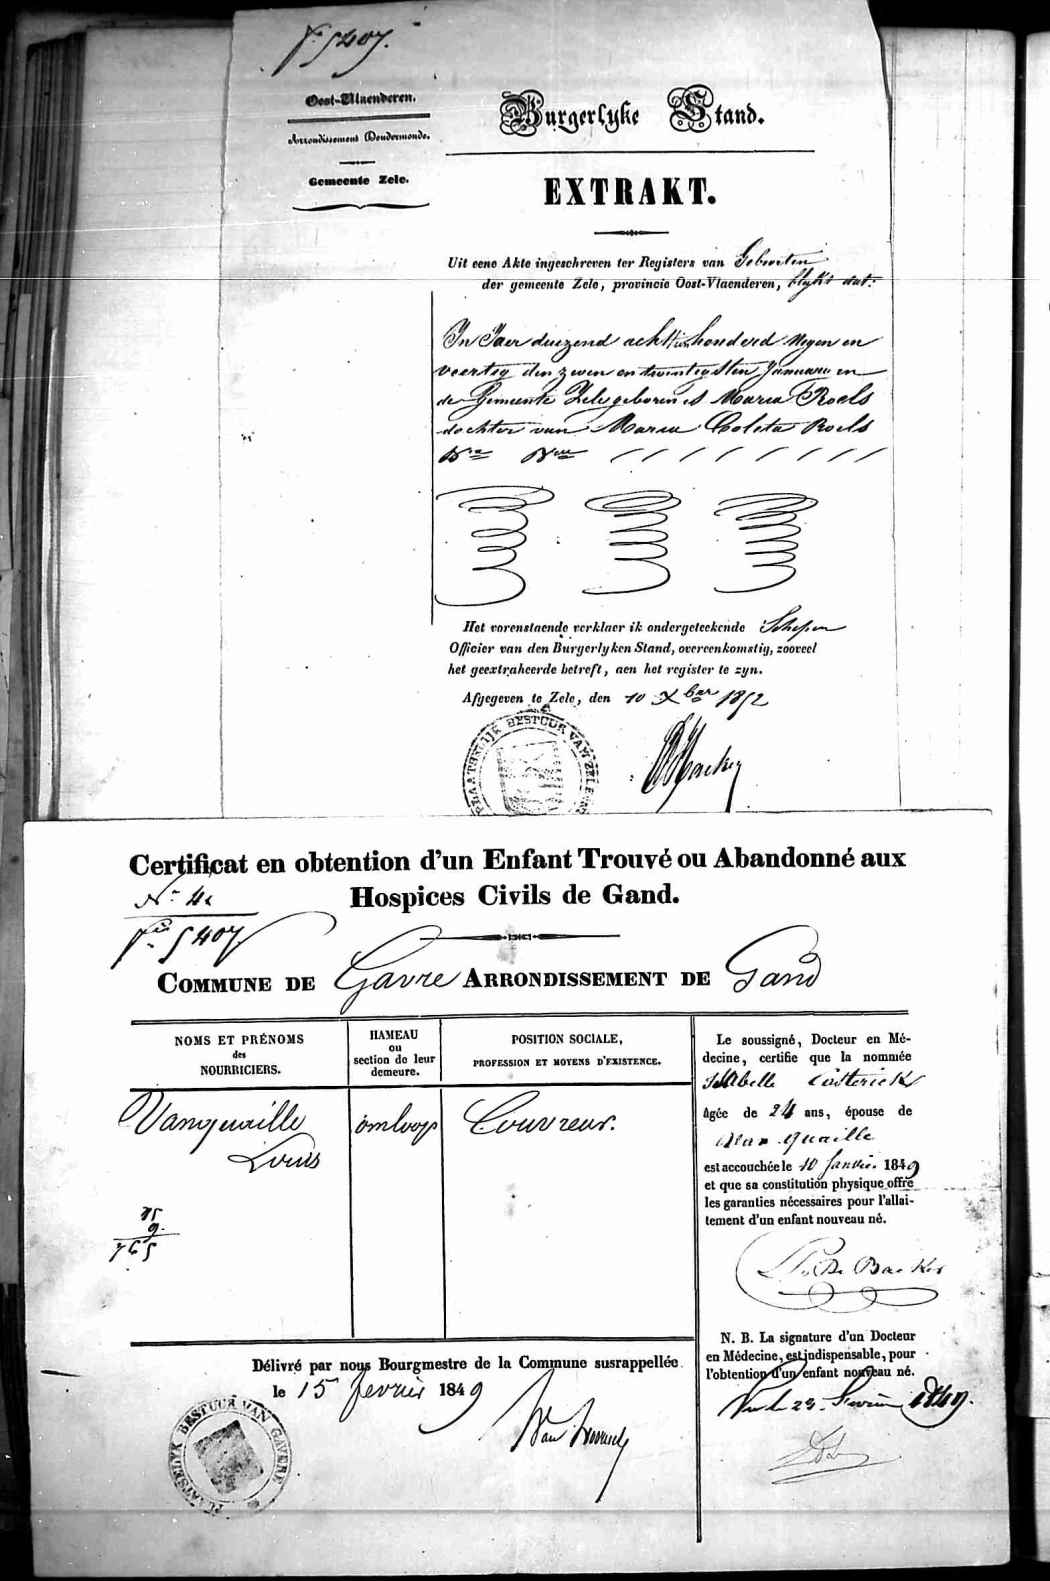 fº 5407.
Oost-Vlaenderen.
Arrondissement Dendermonde.
Gemeente Zele.
Burgerlyke Stand.
EXTRAKT.
Uit eene Akte ingeschreven ter Registers van Geboorten
der gemeente Zele, provincie Oost-Vlaenderen, blykt dat:
In Jaer duizend acht honderd negen en
veertig den zeven en twintigsten January en
de Gemeente Zele geboren is Maria Roels
dochter van Maria Coleta Roels
Het vorenstaende verklaer ik ondergeteekende Schepen
Officier van den Burgerlyken Stand, overeenkomstig, zooveel
het geextraheerde betreft, aen het register te zyn.
Afgegeven te Zele, den 10 Xber 1852
BESTUUR VAN ZELE
Certificat en obtention d'un Enfant Trouvé ou Abandonné aux
Hospices Civils de Gand.
Nº 42
fº 5407
COMMUNE DE Gavre ARRONDISSEMENT DE Gand
NOMS ET PRÉNOMS
des
NOURRICIERS.
HAMEAU
ou
section de leur
demeure.
POSITION SOCIALE,
PROFESSION ET MOYENS D'EXISTENCE.
Vanquaille
Louis
omloop
Couvreur.
75
9.
765
Le soussigné, Docteur en Mé-
decine, certifie que la nommée
Isabelle Casterick
âgée de 24 ans, épouse de
Van quaille
est accouchée le 10 Janvier 1849
et que sa constitution physique offre
les garanties nécessaires pour l'allai-
tement d'un enfant nouveau né.
De Backer
N. B. La signature d'un Docteur
en Médecine, est indispensable, pour
l'obtention d'un enfant nouveau né.
Vu le 23 Fevrier 1849.
Délivré par nous Bourgmestre de la Commune susrappellée
le 15 fevrier 1849
PLAETSELYK BESTUUR VAN GAVERE